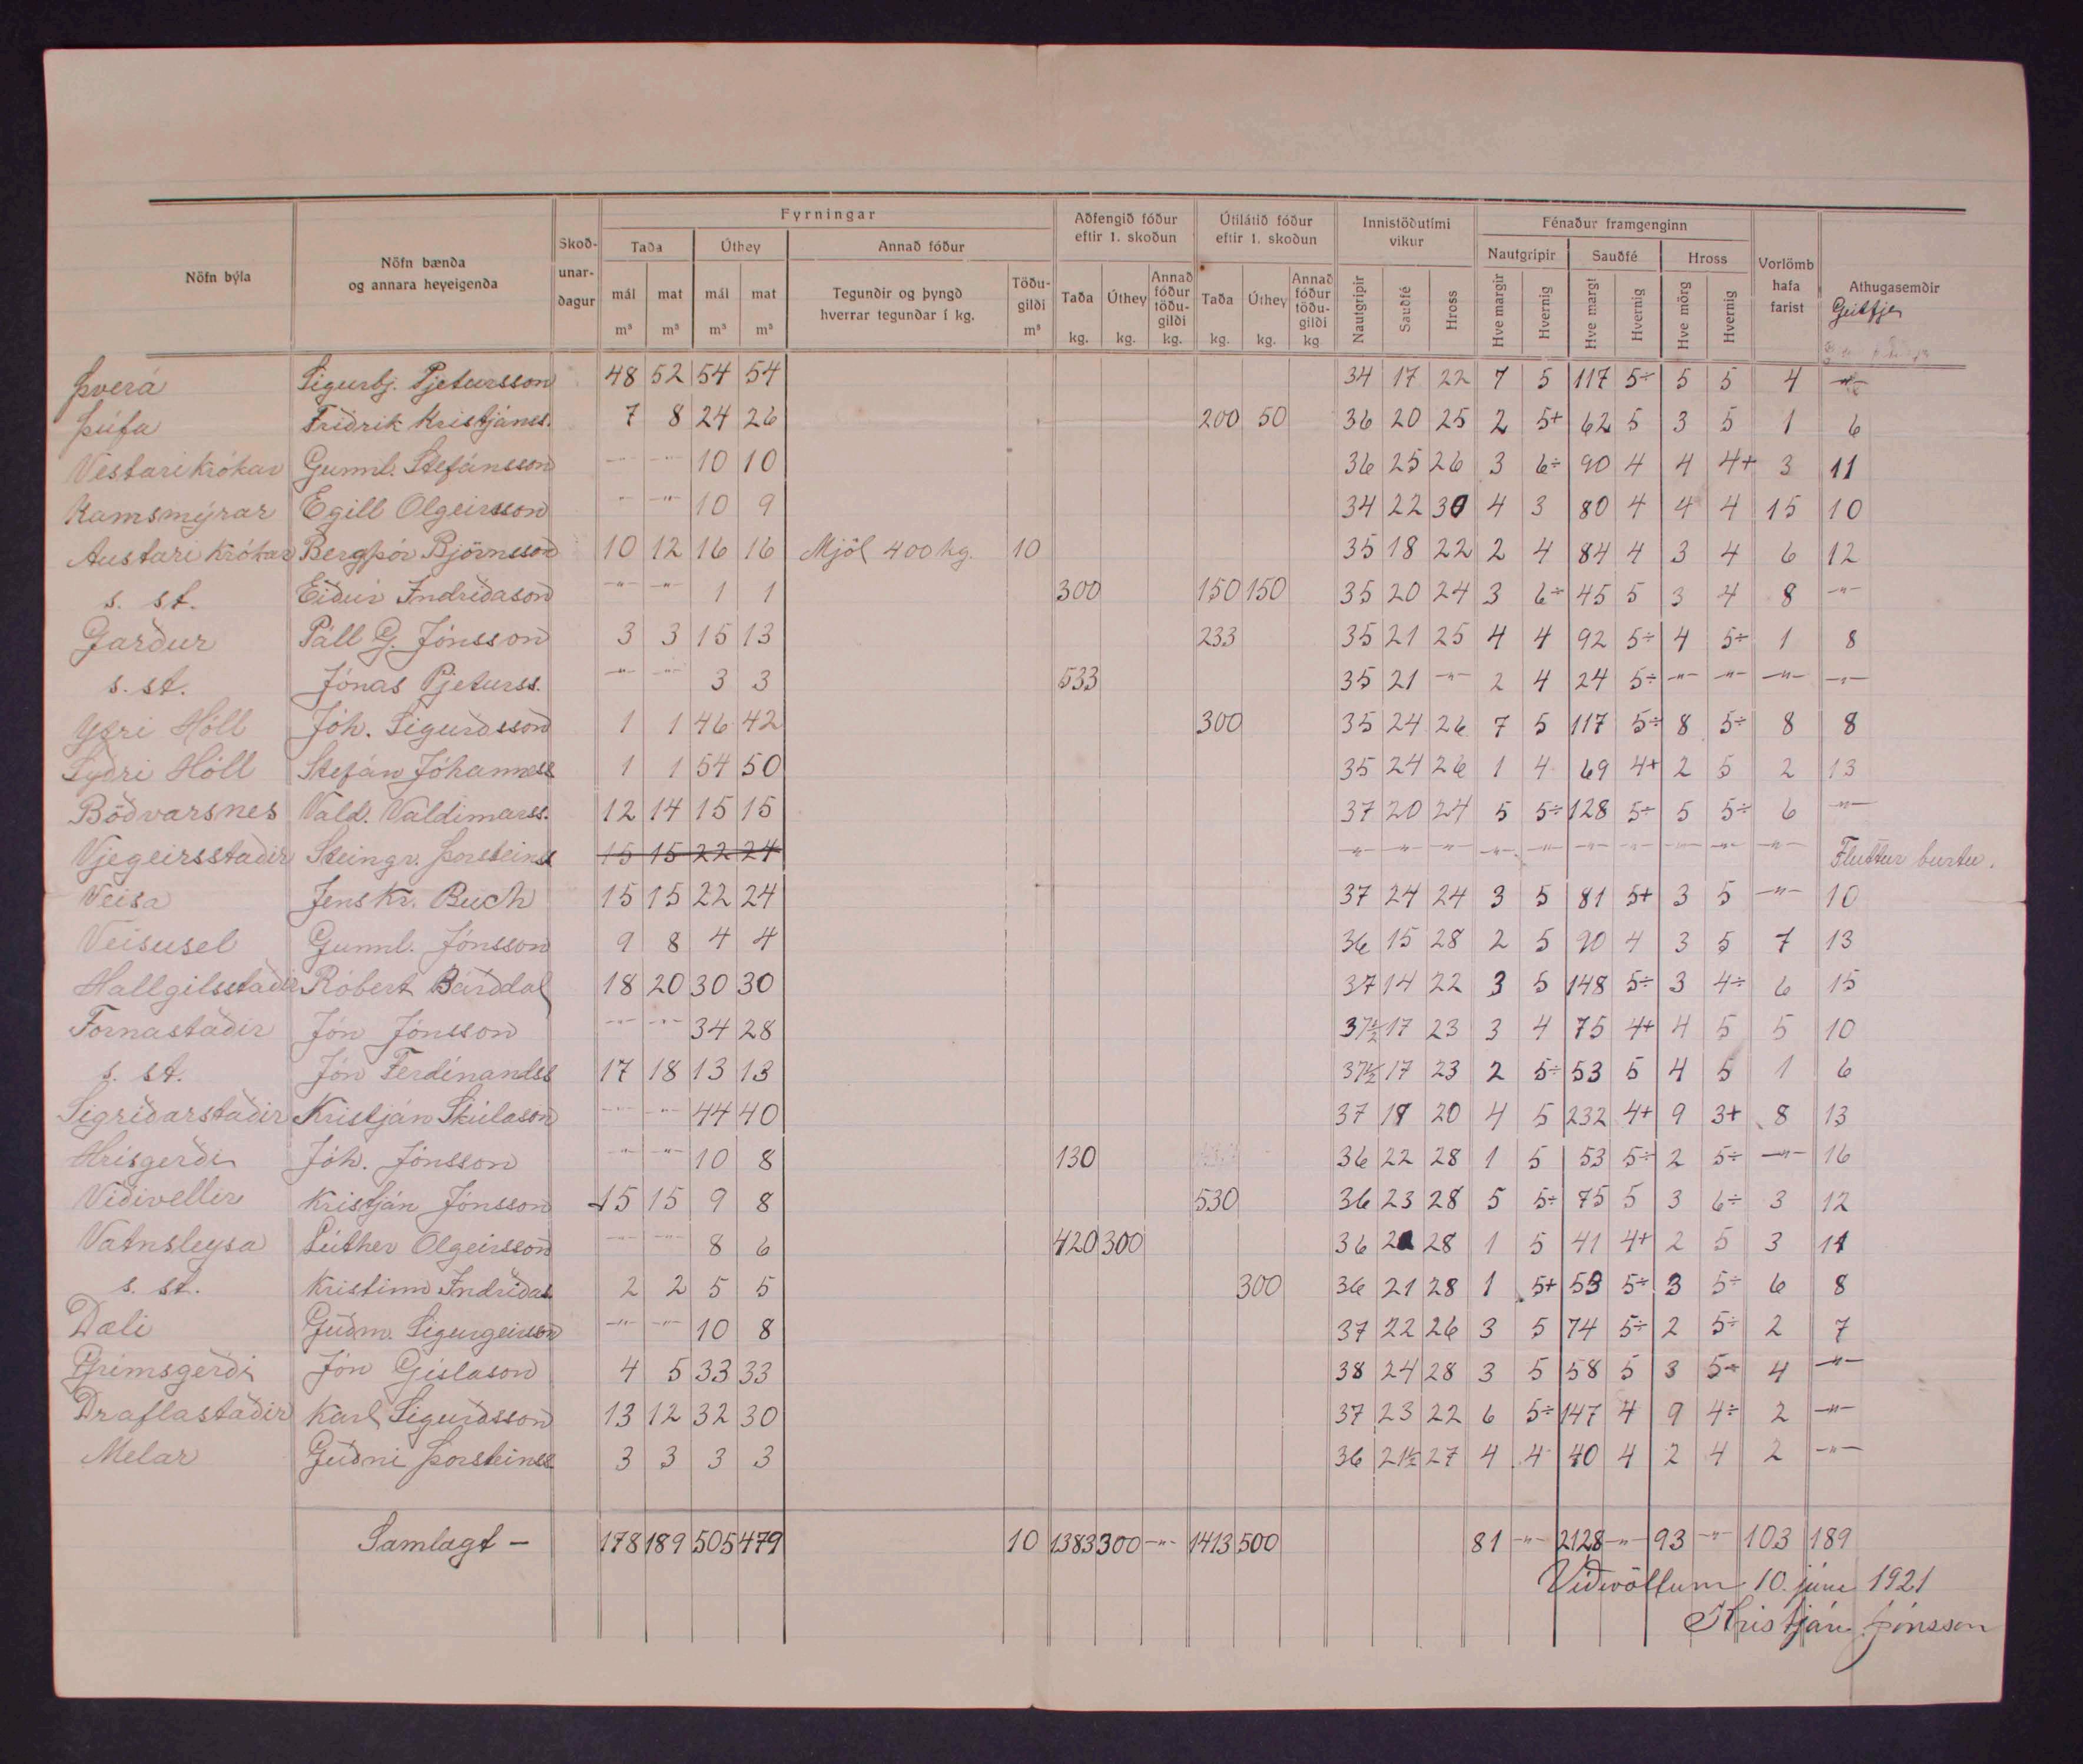 Fyrningar Aðfengið fóður Útilátið fóður Innistöðutími Fénaður framgenginn
eftir 1. skoðun eftir 1. skoðun vikur
Nöfn býla Nöfn bænda og annara heyeigenda Skoð-unar-dagur Taða Úthey Annað fóður Nautgripir Sauðfé Hross Vorlömb hafa farist Athugasemdir
mál m³ mat m³ mál m³ mat m³ Tegundir og þyngd hverrar tegundar í kg. Töðu-gildi m³ Taða kg. Úthey kg. Annað fóður töðu-gildi kg. Taða kg. Úthey kg. Annað fóður töðu-gildi kg Nautgripir Sauðfé Hross Hve margir Hvernig Hve margt Hvernig Hve mörg Hvernig Geitfje
Þverá Sigurbj. Pjetursson 48 52 54 54 34 17 22 7 5 117 5÷ 5 5 4 -"-
Þúfa Friðrik Kristjánss. 7 8 24 26 200 50 36 20 25 2 5+ 62 5 3 5 1 6
Vestari Krókar Gunnl. Stefánsson -"- -"- 10 10 36 25 26 3 6÷ 90 4 4 4+ 3 11
Kamsmýrar Egill Olgeirsson -"- -"- 10 9 34 22 30 4 3 80 4 4 4 15 10
Austari Krókar Bergþór Björnsson 10 12 16 16 Mjöl 400 kg. 10 35 18 22 2 4 84 4 3 4 6 12
s. st. Eiður Indriðason -"- -"- 1 1 300 150 150 35 20 24 3 6÷ 45 5 3 4 8 -"-
Garður Páll G. Jónsson 3 3 15 13 233 35 21 25 4 4 92 5÷ 4 5÷ 1 8
s. st. Jónas Pjeturss. -"- -"- 3 3 533 35 21 -"- 2 4 24 5÷ -"- -"- -"- -"-
Ytri Hóll Jóh. Sigurðsson 1 1 46 42 300 35 24 26 7 5 117 5÷ 8 5÷ 8 8
Syðri Hóll Stefán Jóhanness 1 1 54 50 35 24 26 1 4 69 4+ 2 5 2 13
Böðvarsnes Vald. Valdimarss. 12 14 15 15 37 20 24 5 5÷ 128 5÷ 5 5÷ 6 -"-
Vjegeirsstaðir Steingr. Þorsteinss 15 15 22 24 -"- -"- -"- -"- -"- -"- -"- -"- -"- -"- Fluttur burtu.
Veisa Jens Kr. Buch 15 15 22 24 37 24 24 3 5 81 5+ 3 5 -"- 10
Veisusel Gunnl. Jónsson 9 8 4 4 36 15 28 2 5 90 4 3 5 7 13
Hallgilsstaðir Róbert Bárðdal 18 20 30 30 37 14 22 3 5 148 5÷ 3 4÷ 6 15
Fornastaðir Jón Jónsson -"- -"- 34 28 37½ 17 23 3 4 75 4+ 4 5 5 10
s. st. Jón Ferdínandss 17 18 13 13 37½ 17 23 2 5÷ 53 5 4 5 1 6
Sigríðarstaðir Kristján Skúlason -"- -"- 44 40 37 18 20 4 5 232 4+ 9 3+ 8 13
Hrísgerði Jóh. Jónsson -"- -"- 10 8 130 36 22 28 1 5 53 5÷ 2 5÷ -"- 16
Víðivellir Kristján Jónsson 15 15 9 8 530 36 23 28 5 5÷ 75 5 3 6÷ 3 12
Vatnsleysa Lúther Olgeirsson -"- -"- 8 6 420 300 36 28 1 5 41 4+ 2 5 3
s. st. Kristinn Indriðas 2 2 5 5 300 36 21 28 1 5+ 53 5÷ 3 5÷ 6 8
Dæli Guðm. Sigurgeirsson -"- -"- 10 8 37 22 26 3 5 74 5÷ 2 5÷ 2 7
Grímsgerði Jón Gíslason 4 5 33 33 38 24 28 3 5 58 5 3 5÷ 4 -"-
Draflastaðir Karl Sigurðsson 13 12 32 30 37 23 22 6 5÷ 147 4 9 4÷ 2 -"-
Melar Guðni Þorsteinss 3 3 3 3 36 21½ 27 4 4 40 4 2 4 2 -"-
Samlagt - 178 189 505 479 10 1383 300 -"- 1413 500 81 -"- 2128 -"- 93 -"- 103 189
Víðivöllum 10. júní 1921
Kristján Jónsson